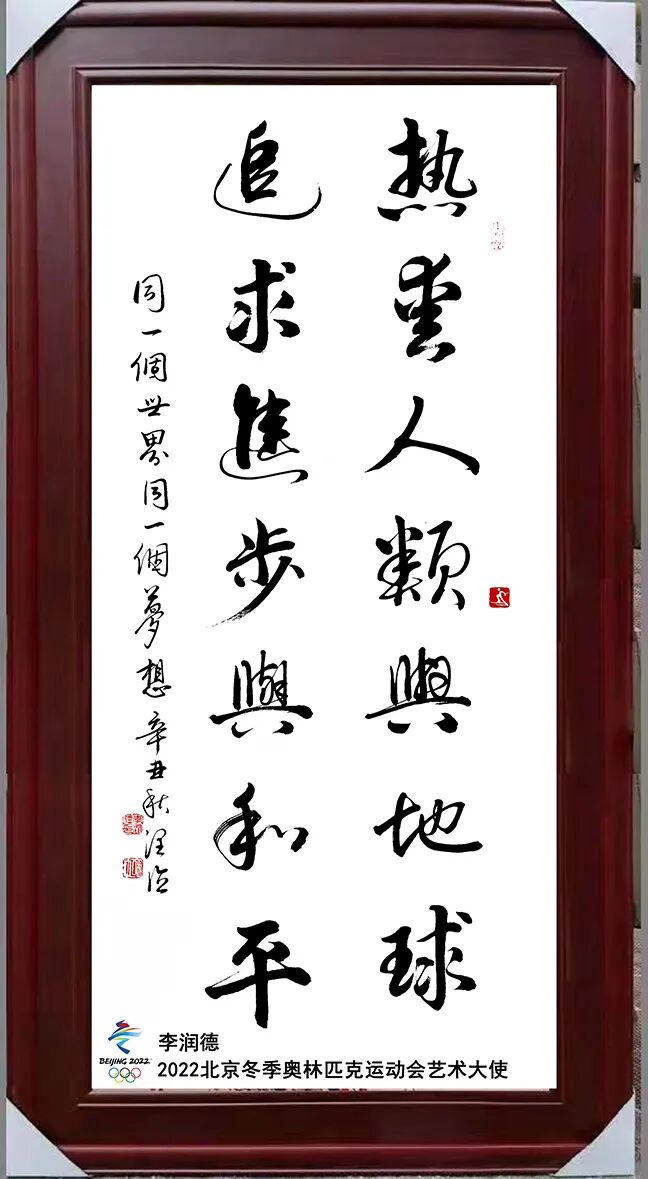 热爱人類與地球
追求進步與和平
同一個世界同一個夢想 辛丑秋润德
BEIJING 2022
李润德
2022北京冬季奥林匹克运动会艺术大使